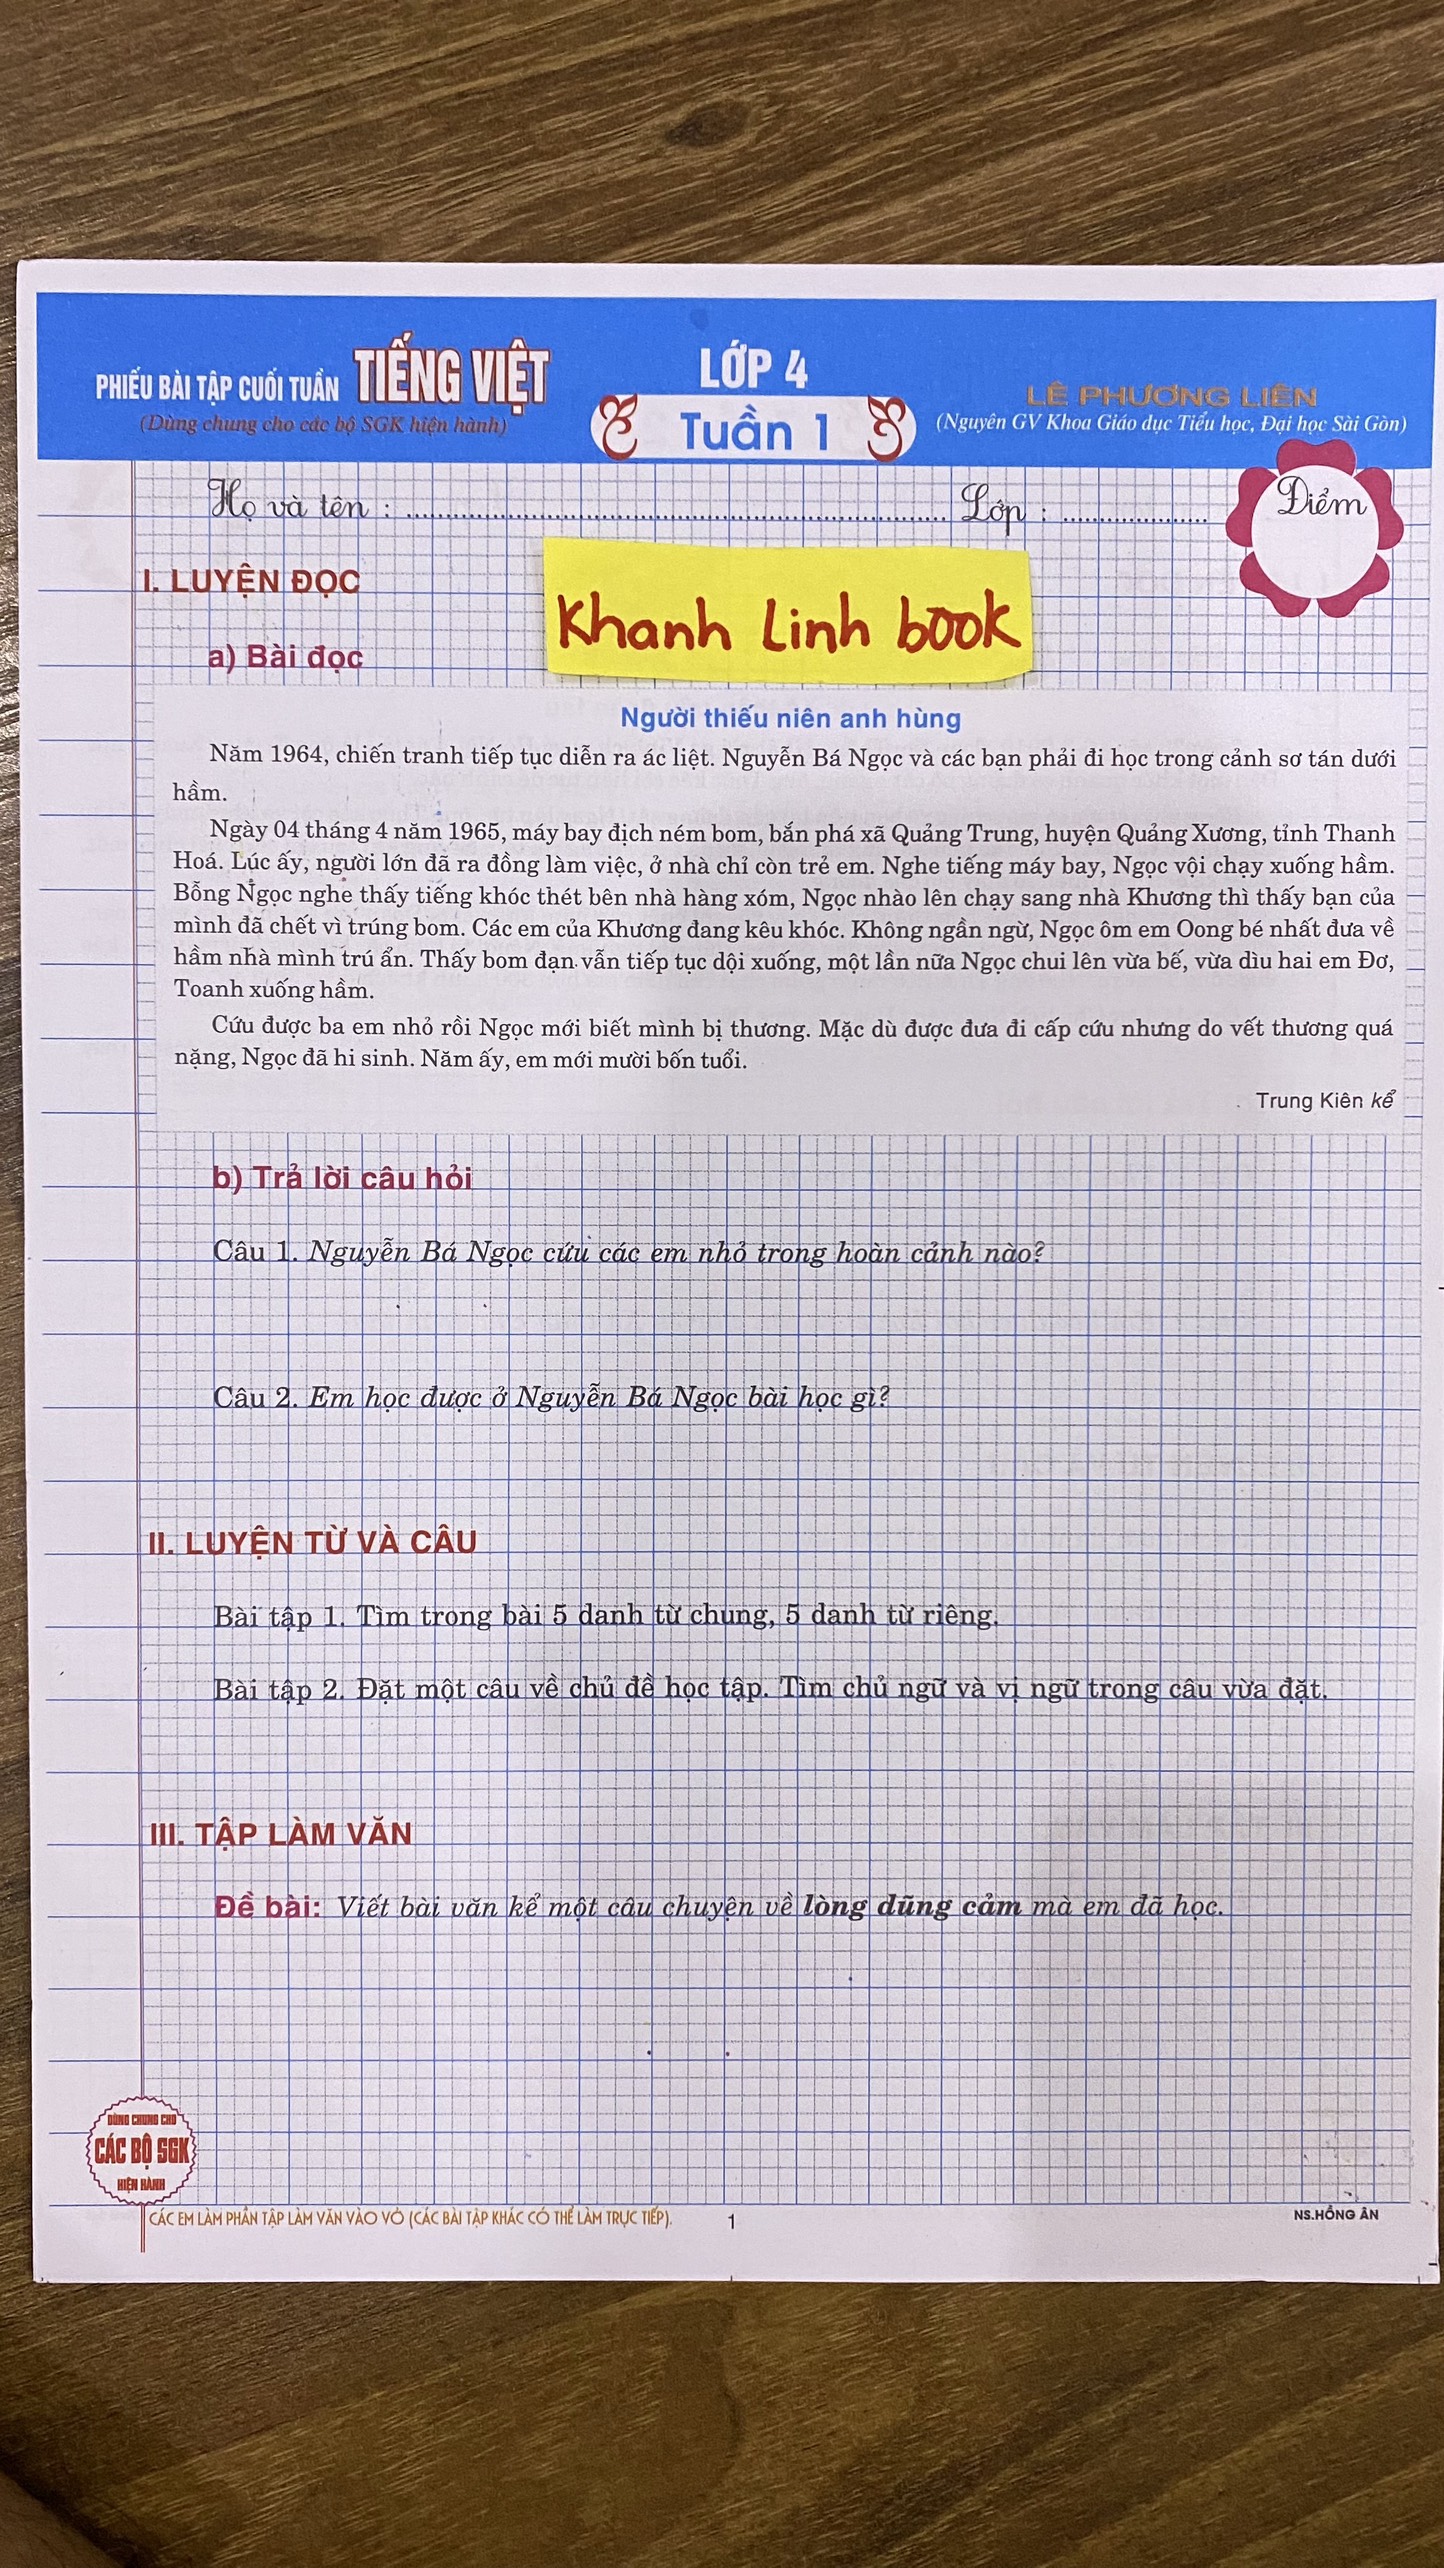 PHIẾU BÀI TẬP CUỐI TUẦN TIẾNG VIỆT
(Dùng chung cho các bộ SGK hiện hành)
LỚP 4
Tuần 1
LÊ PHƯƠNG LIÊN
(Nguyên GV Khoa Giáo dục Tiểu học, Đại học Sài Gòn)
Họ và tên : Lớp :
Điểm
I. LUYỆN ĐỌC
Khanh Linh book
a) Bài đọc
Người thiếu niên anh hùng
Năm 1964, chiến tranh tiếp tục diễn ra ác liệt. Nguyễn Bá Ngọc và các bạn phải đi học trong cảnh sơ tán dưới
hầm.
Ngày 04 tháng 4 năm 1965, máy bay địch ném bom, bắn phá xã Quảng Trung, huyện Quảng Xương, tỉnh Thanh
Hoá. Lúc ấy, người lớn đã ra đồng làm việc, ở nhà chỉ còn trẻ em. Nghe tiếng máy bay, Ngọc vội chạy xuống hầm.
Bỗng Ngọc nghe thấy tiếng khóc thét bên nhà hàng xóm, Ngọc nhào lên chạy sang nhà Khương thì thấy bạn của
mình đã chết vì trúng bom. Các em của Khương đang kêu khóc. Không ngần ngừ, Ngọc ôm em Oong bé nhất đưa về
hầm nhà mình trú ẩn. Thấy bom đạn vẫn tiếp tục dội xuống, một lần nữa Ngọc chui lên vừa bế, vừa dìu hai em Đơ,
Toanh xuống hầm.
Cứu được ba em nhỏ rồi Ngọc mới biết mình bị thương. Mặc dù được đưa đi cấp cứu nhưng do vết thương quá
nặng, Ngọc đã hi sinh. Năm ấy, em mới mười bốn tuổi.
Trung Kiên kể
b) Trả lời câu hỏi
Câu 1. Nguyễn Bá Ngọc cứu các em nhỏ trong hoàn cảnh nào?
Câu 2. Em học được ở Nguyễn Bá Ngọc bài học gì?
II. LUYỆN TỪ VÀ CÂU
Bài tập 1. Tìm trong bài 5 danh từ chung, 5 danh từ riêng.
Bài tập 2. Đặt một câu về chủ đề học tập. Tìm chủ ngữ và vị ngữ trong câu vừa đặt.
III. TẬP LÀM VĂN
Đề bài: Viết bài văn kể một câu chuyện về lòng dũng cảm mà em đã học.
DÙNG CHUNG CHO
CÁC BỘ SGK
HIỆN HÀNH
CÁC EM LÀM PHẦN TẬP LÀM VĂN VÀO VỞ (CÁC BÀI TẬP KHÁC CÓ THỂ LÀM TRỰC TIẾP).
1
NS.HỒNG ÂN